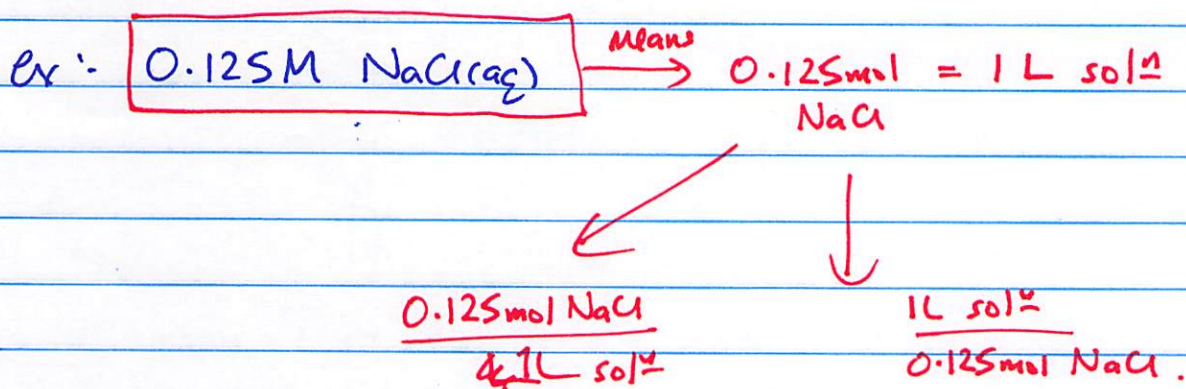 ex:- 0.125M NaCl(aq) means → 0.125mol = 1 L solⁿ
NaCl
0.125mol NaCl 1L solⁿ
1L solⁿ 0.125mol NaCl.